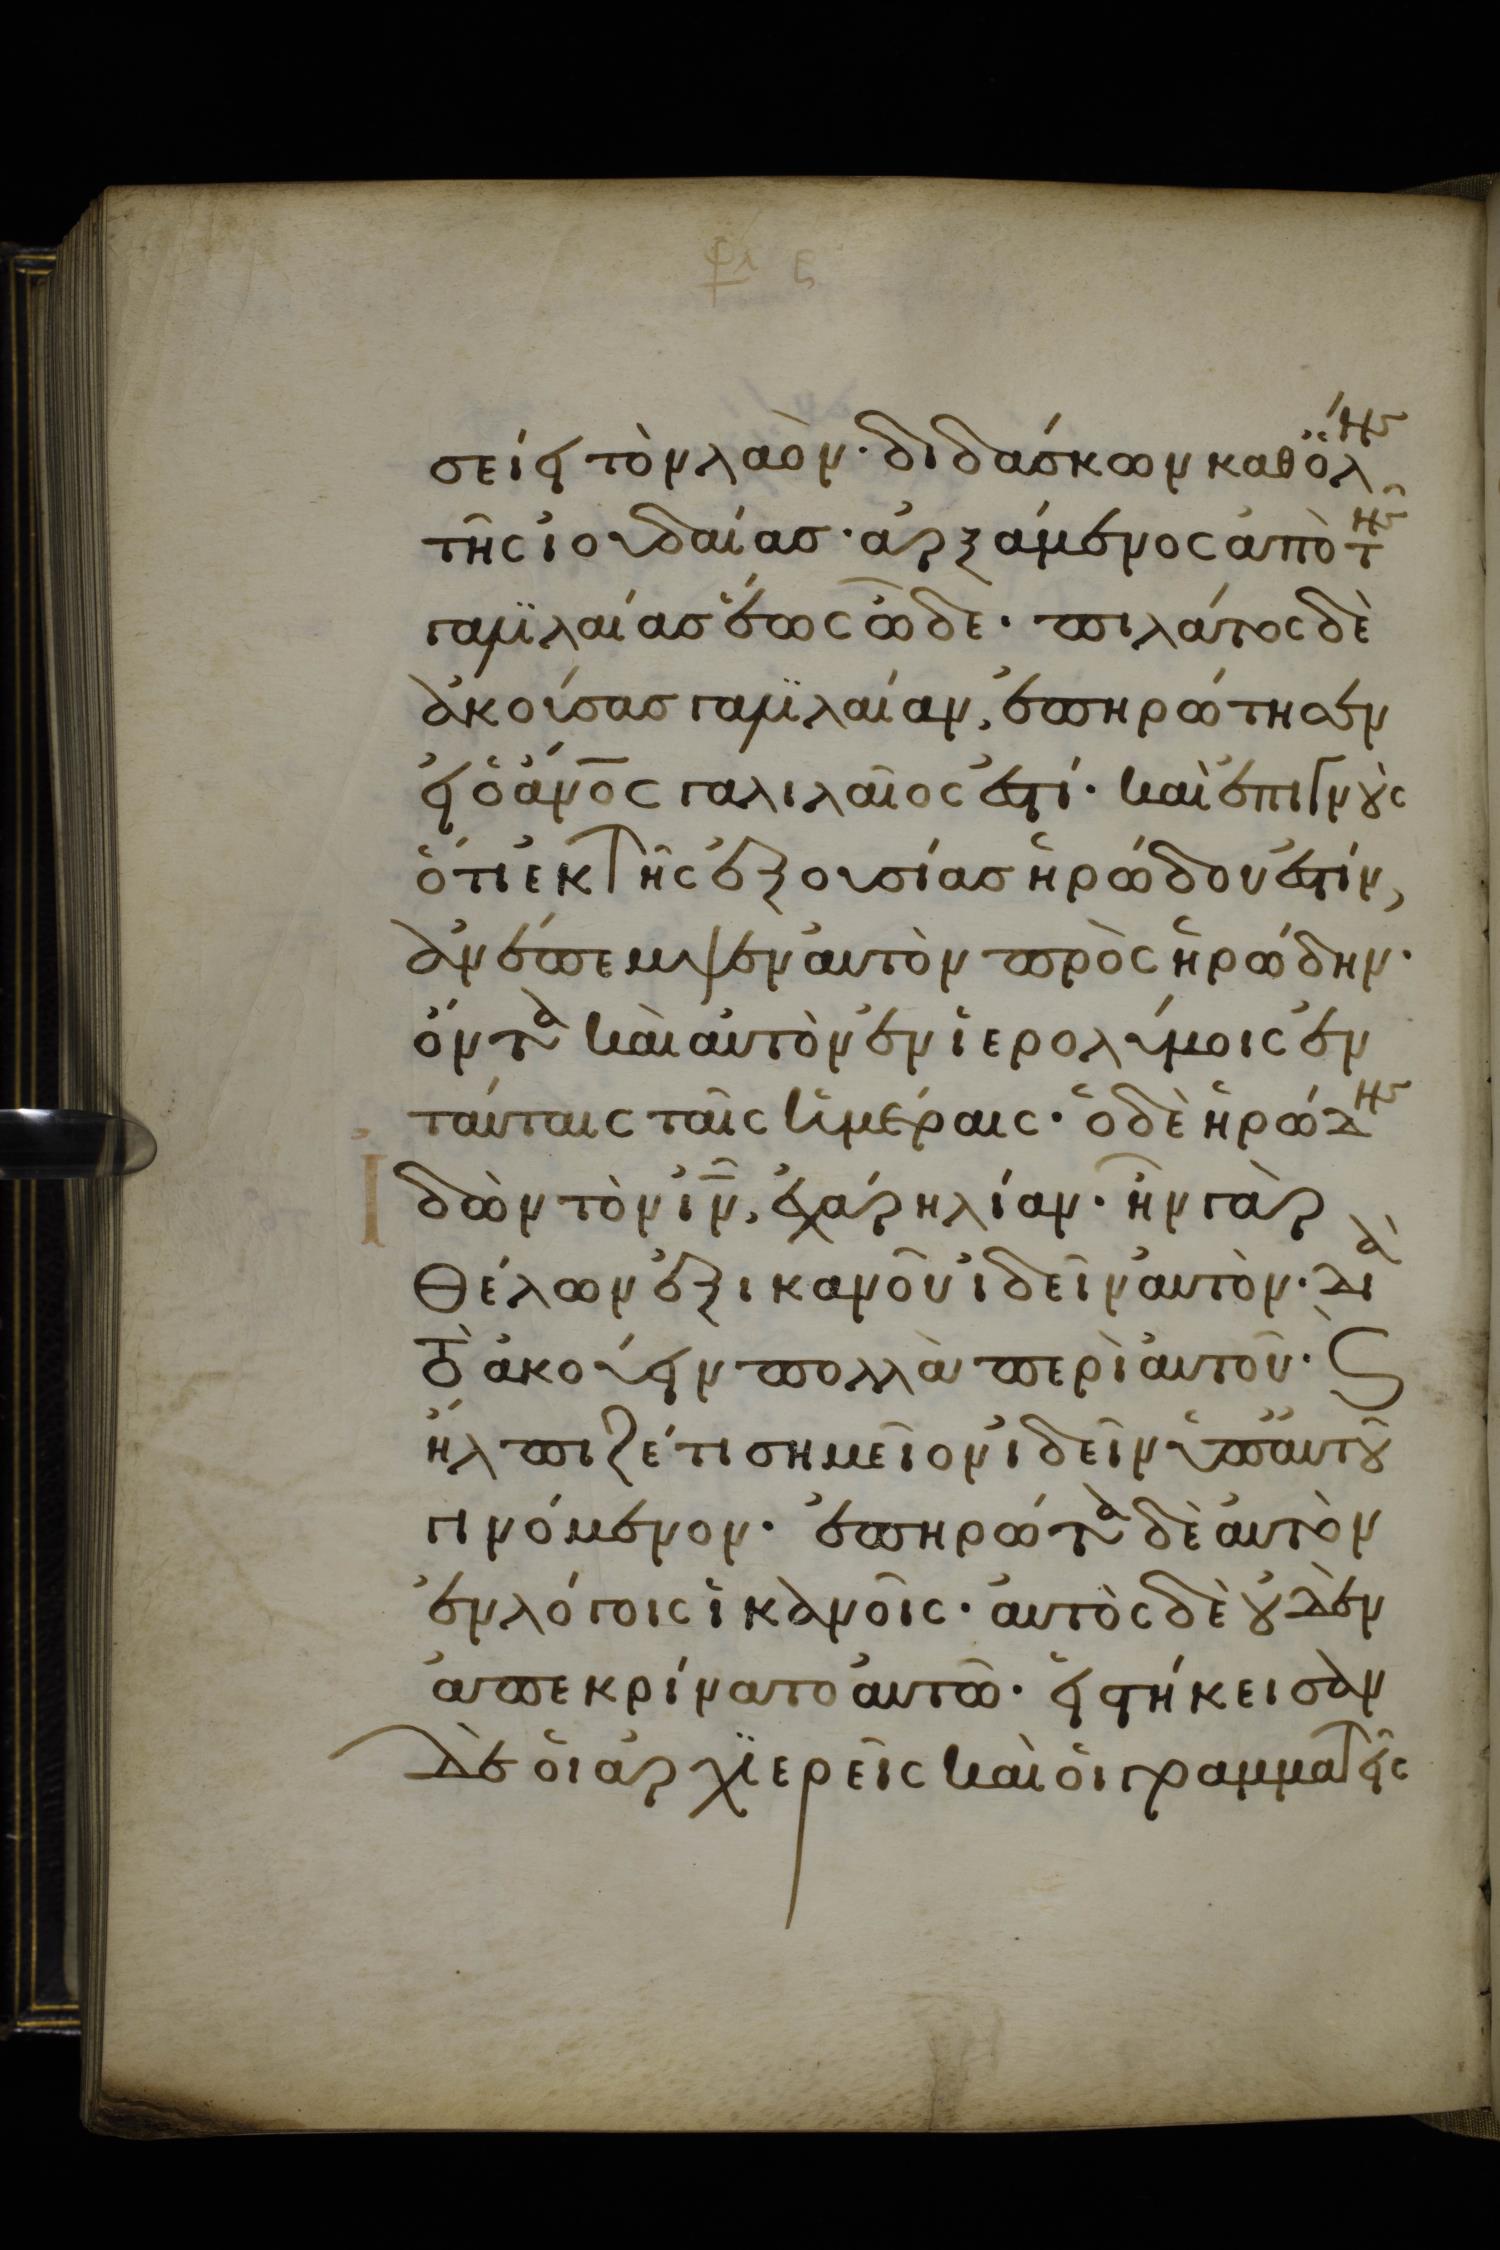 σείει τὸν λαὸν· διδάσκων καθ ὅλης
τῆς ἰουδαίασ· ἀρξάμενος ἀπὸ τῆς
γαλϊλαίασ ἕως ὧδε· πιλάτος δὲ
ἀκούσασ γαλϊλαίαν, ἐπηρώτησεν
εἰ ὁ ἄνος γαλιλαῖος ἐστί· καὶ ἐπιγνοὺς
ὅτι ἐκ τῆς ἐξουσίασ ἡρώδου ἐστίν,
ἀνέπεμψεν αὐτὸν πρὸς ἡρώδην·
ὄντα καὶ αὐτὸν ἐν ἱεροσολύμοις ἐν
ταύταις ταῖς ἡμέραις· ὁ δὲ ἡρώδης
ἰδὼν τὸν ἰν, ἐχάρη λίαν· ἦν γὰρ
θέλων ἐξ ἱκανοῦ ἰδεῖν αὐτὸν· διὰ
τὸ ἀκούειν πολλὰ περὶ αὐτοῦ· ϛ
ἤλπιζέ τι σημεῖον ἰδεῖν ὑπ αὐτοῦ
γινόμενον· ἐπηρώτα δὲ αὐτὸν
ἐν λόγοις ἱκανοῖς· αὐτὸς δὲ οὐδὲν
ἀπεκρίνατο αὐτῶ· εἱστήκεισαν
δὲ οἱ ἀρχϊερεῖς καὶ οἱ γραμματεῖς